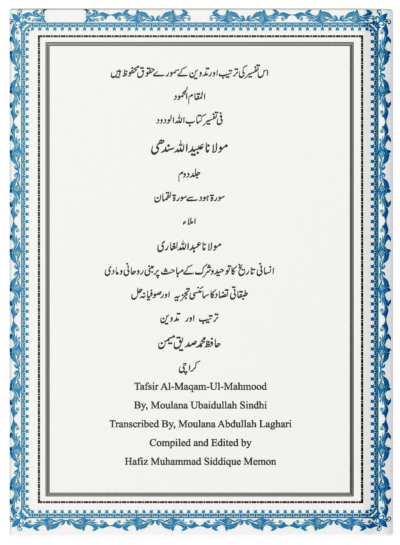 اس تفسیر کی ترتیب اور تدوین کے سمورے حقوق محفوظ ہیں
المقام المحمود
فی تفسیر کتاب اللہ الودود
مولانا عبیداللہ سندھی
جلد دوم
سورۃ ہود سے سورۃ لقمان
املاء
مولانا عبداللہ لغاری
انسانی تاریخ کا توحید و شرک کے مباحث پر مبنی روحانی و مادی
طبقاتی تضاد کا سائنسی تجزیہ اور صوفیانہ حل
ترتیب اور تدوین
حافظ محمد صدیق میمن
کراچی
Tafsir Al-Maqam-Ul-Mahmood
By, Moulana Ubaidullah Sindhi
Transcribed By, Moulana Abdullah Laghari
Compiled and Edited by
Hafiz Muhammad Siddique Memon